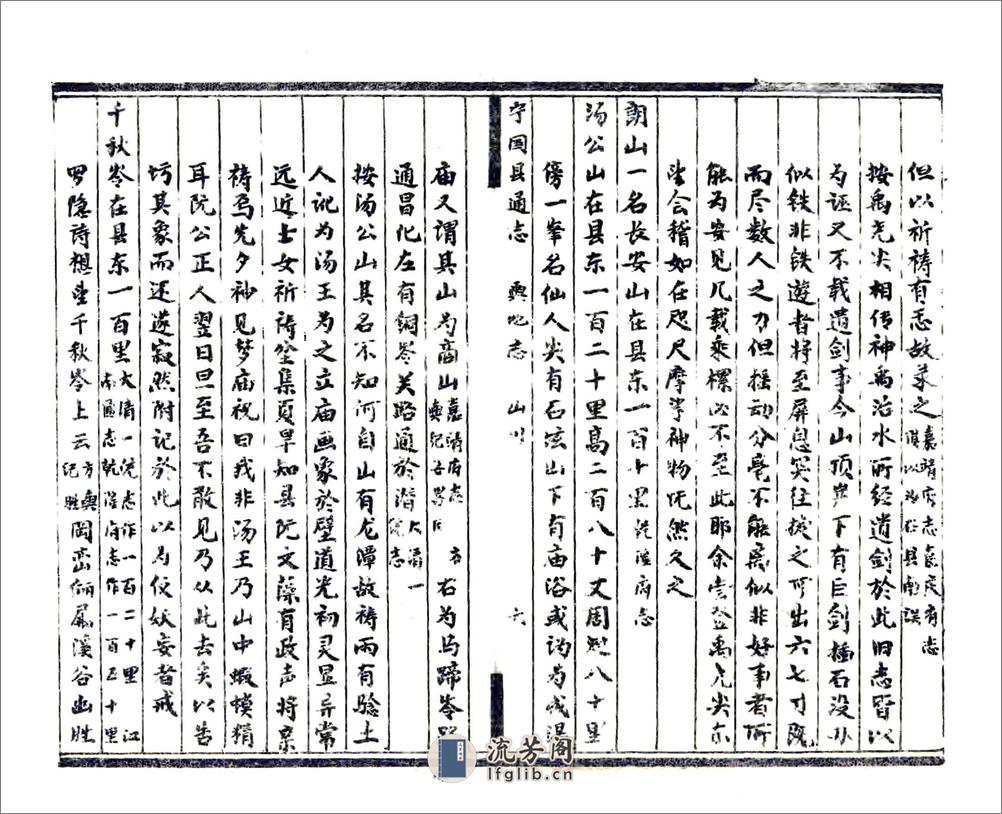 但以祈祷有志故录之嘉靖府志
按禹尧尖相传神禹治水所经遗剑於此旧志皆以
为诬又不载遗剑事今山顶岸下有巨剑插石没水
似铁非铁遊者将至屏息笑往拔之可出六七寸既
而尽数人之力但摇动分毫不能离似非好事者所
能为安见几载乘樏必不至此耶余尝登禹尧尖东
望会稽如在咫尺摩挲神物怃然久之
朗山一名长安山在县东一百十里乾隆府志
汤公山在县东一百二十里高二百八十丈周廻八十里
傍一峯名仙人尖有石坛山下有庙浴或讹为成汤
宁国县通志 輿地志 山川 六
庙又谓其山为商山嘉靖府志輿纪 右为马蹄岺路
通昌化左有铜岺关路通於潜大清一统志
按汤公山其名不知何自山有龙潭故祷雨有驗土
人讹为汤王为之立庙画象於壁道光初灵显异常
远近士女祈祷坌集夏旱知县阮文藻有政声将亲
祷焉先夕神见梦庙祝曰我非汤王乃山中蝦模精
耳阮公正人翌日旦至吾不敢见乃从此去矣以告
圬其象而还遂寂然附记於此以为仗妖妄者戒
千秋岺在县东一百里大清一统志作一百二十里江南通志乾隆府志作一百五十里
罗隐诗想望千秋岺上云方輿纪胜岡峦俩屬溪谷幽胜
流芳阁
lfglib.cn